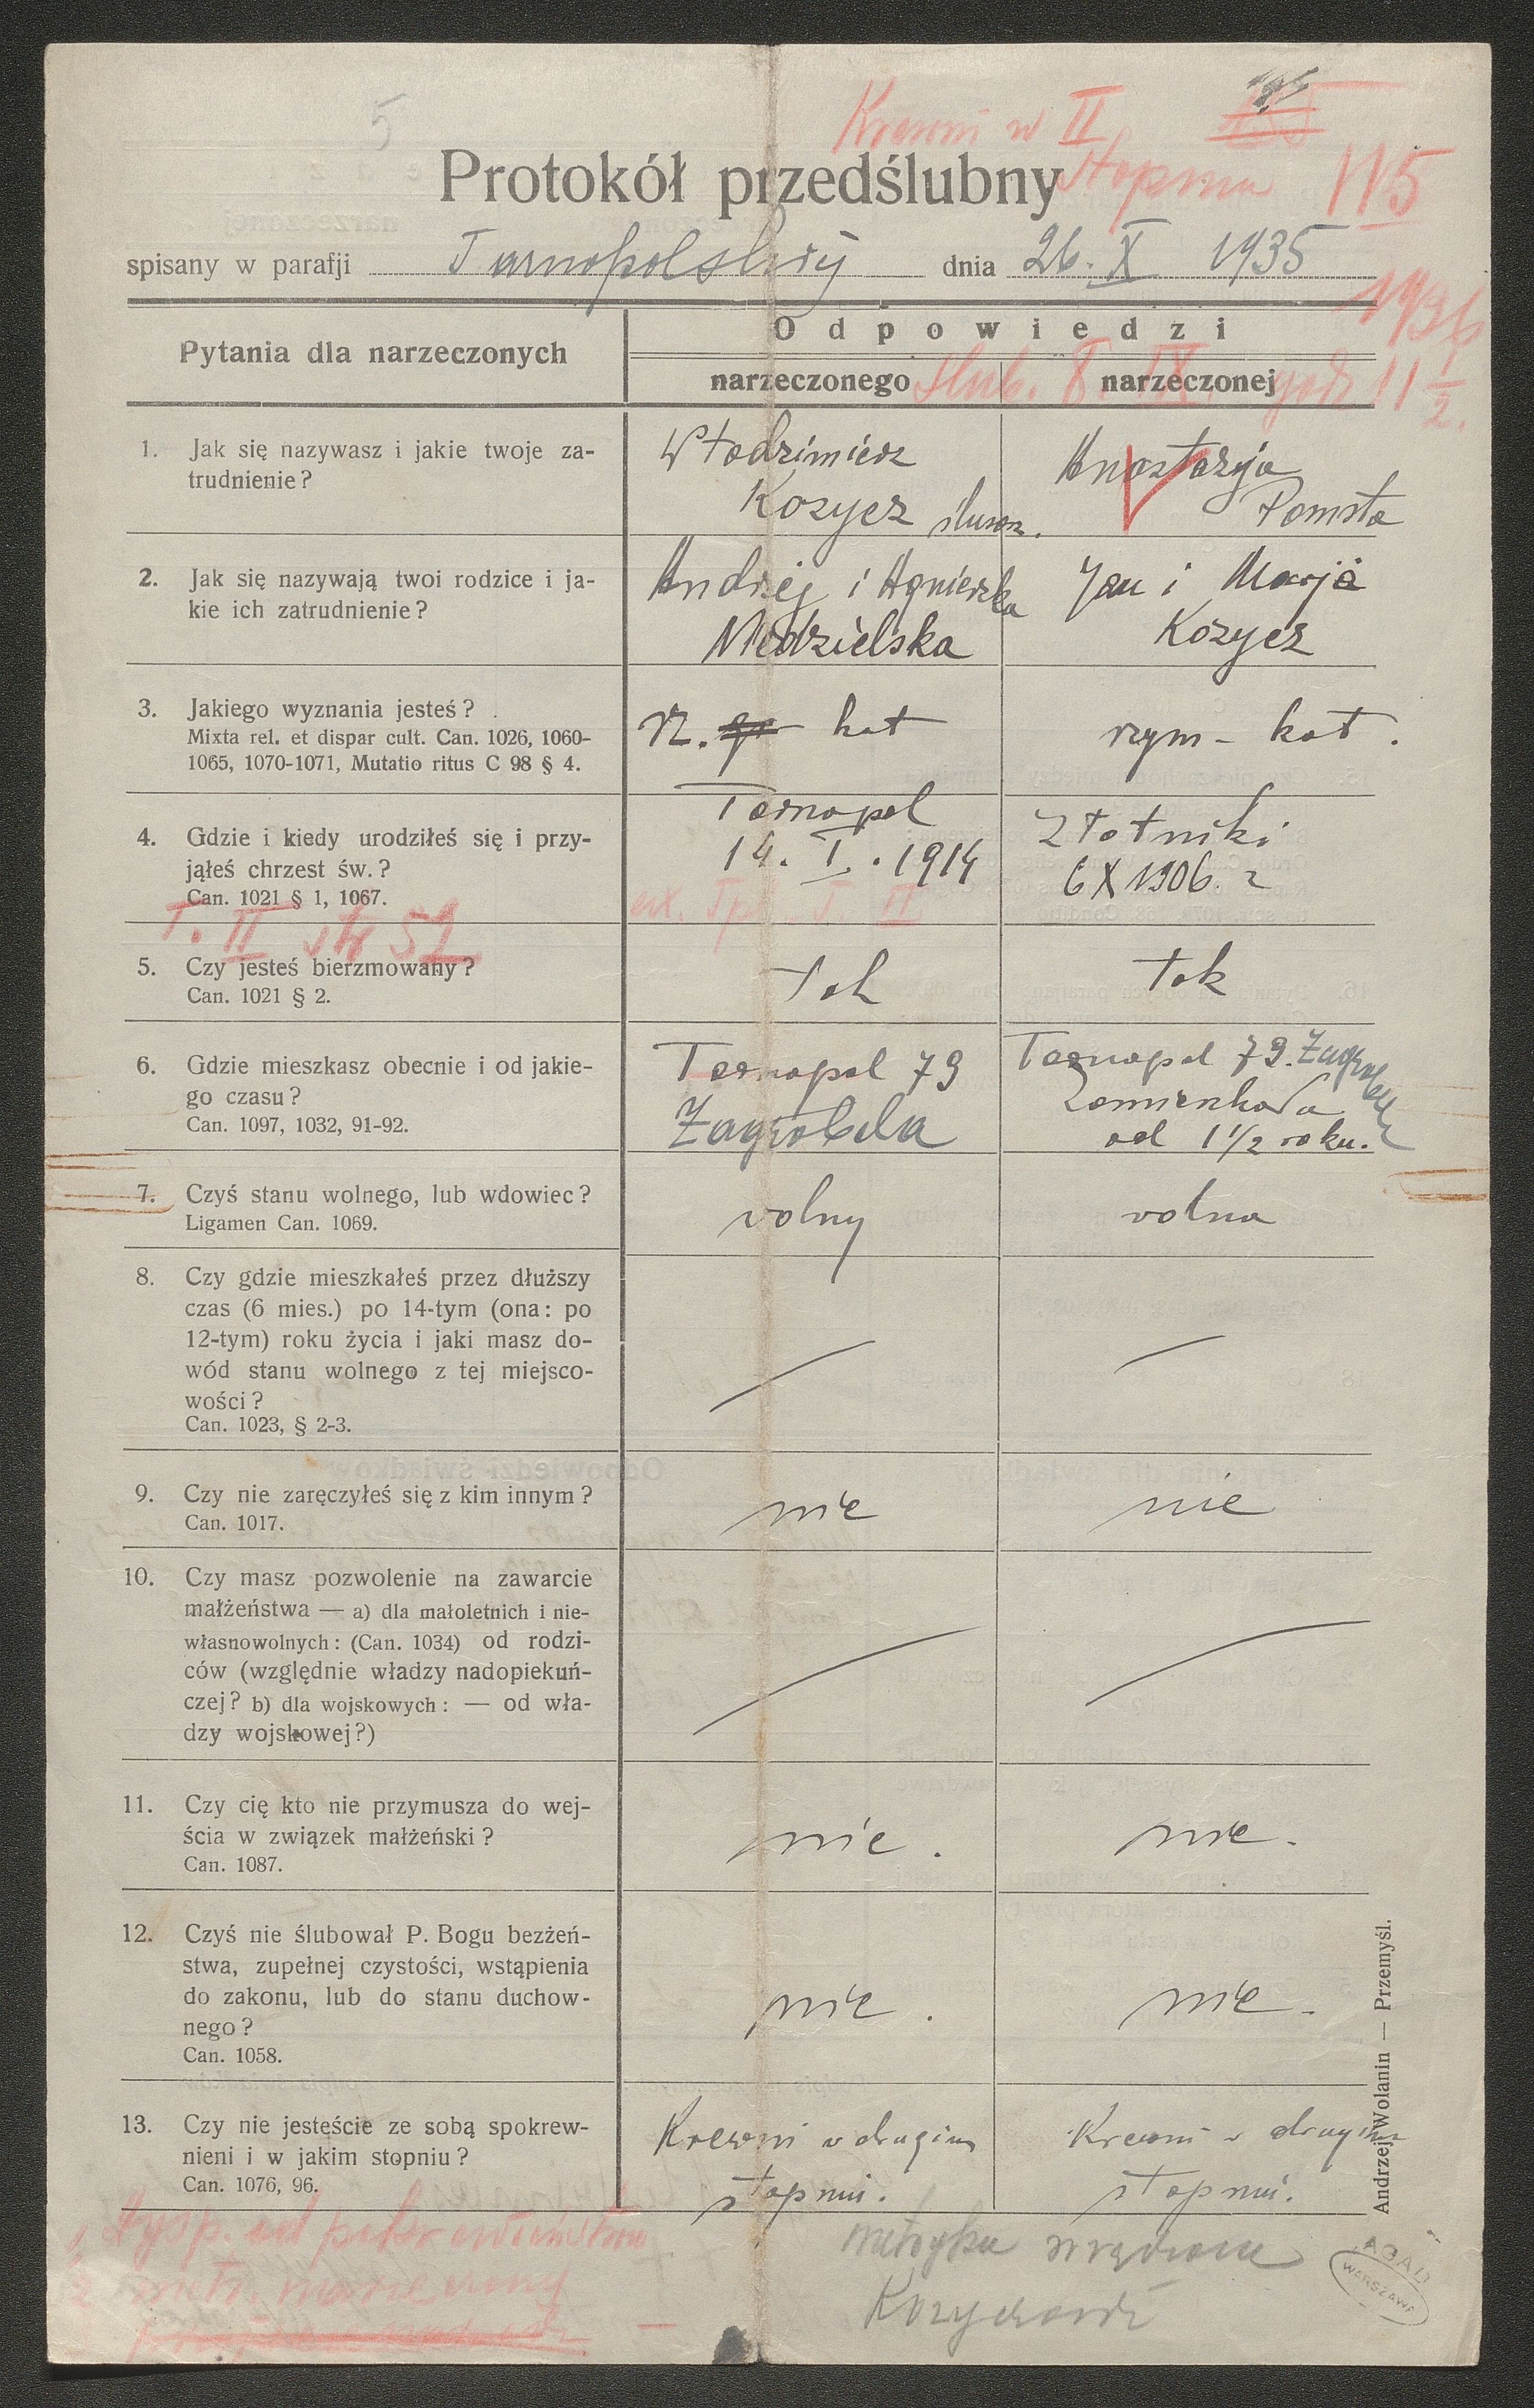 5
Krewni w II
stopniu 115
Protokół przedślubny
spisany w parafji Tarnopolskiej dnia 26. X 1935
1936
Pytania dla narzeczonych
Odpowiedzi
narzeczonego narzeczonej
ślub. 8. IX. godz 11 1/2.
1. Jak się nazywasz i jakie twoje za-
trudnienie?
Włodzimierz
Kozycz ślusarz.
Anastazja
Pomsta
2. Jak się nazywają twoi rodzice i ja-
kie ich zatrudnienie?
Andrzej i Agnieszka
Niedzielska
Jan i Marja
Kozycz
3. Jakiego wyznania jesteś?
Mixta rel. et dispar cult. Can. 1026, 1060-
1065, 1070-1071, Mutatio ritus C 98 § 4.
rz. gr kat
rzym - kat.
4. Gdzie i kiedy urodziłeś się i przy-
jąłeś chrzest św.?
Can. 1021 § 1, 1067.
T. II str 52
Tarnopol
14. I. 1914
Złotniki
6 X 1906. r
5. Czy jesteś bierzmowany?
Can. 1021 § 2.
tak
tak
6. Gdzie mieszkasz obecnie i od jakie-
go czasu?
Can. 1097, 1032, 91-92.
Tarnopol 79
Zagrobela
Tarnopol 79. Zagrobela
Zamieszkała
od 1 1/2 roku.
7. Czyś stanu wolnego, lub wdowiec?
Ligamen Can. 1069.
wolny
wolna
8. Czy gdzie mieszkałeś przez dłuższy
czas (6 mies.) po 14-tym (ona: po
12-tym) roku życia i jaki masz do-
wód stanu wolnego z tej miejsco-
wości?
Can. 1023, § 2-3.
9. Czy nie zaręczyłeś się z kim innym?
Can. 1017.
nie
nie
10. Czy masz pozwolenie na zawarcie
małżeństwa — a) dla małoletnich i nie-
własnowolnych: (Can. 1034) od rodzi-
ców (względnie władzy nadopiekuń-
czej? b) dla wojskowych: — od wła-
dzy wojskowej?)
11. Czy cię kto nie przymusza do wej-
ścia w związek małżeński?
Can. 1087.
nie.
nie.
12. Czyś nie ślubował P. Bogu bezżeń-
stwa, zupełnej czystości, wstąpienia
do zakonu, lub do stanu duchow-
nego?
Can. 1058.
nie.
nie.
13. Czy nie jesteście ze sobą spokrew-
nieni i w jakim stopniu?
Can. 1076, 96.
Krewni w drugim
stopniu.
Krewni w drugim
stopniu.
Andrzej Wolanin — Przemyśl.
1, dysp. od pokrewieństwa
2 metr. narzeczonej
metryka
AGAD
WARSZAWA